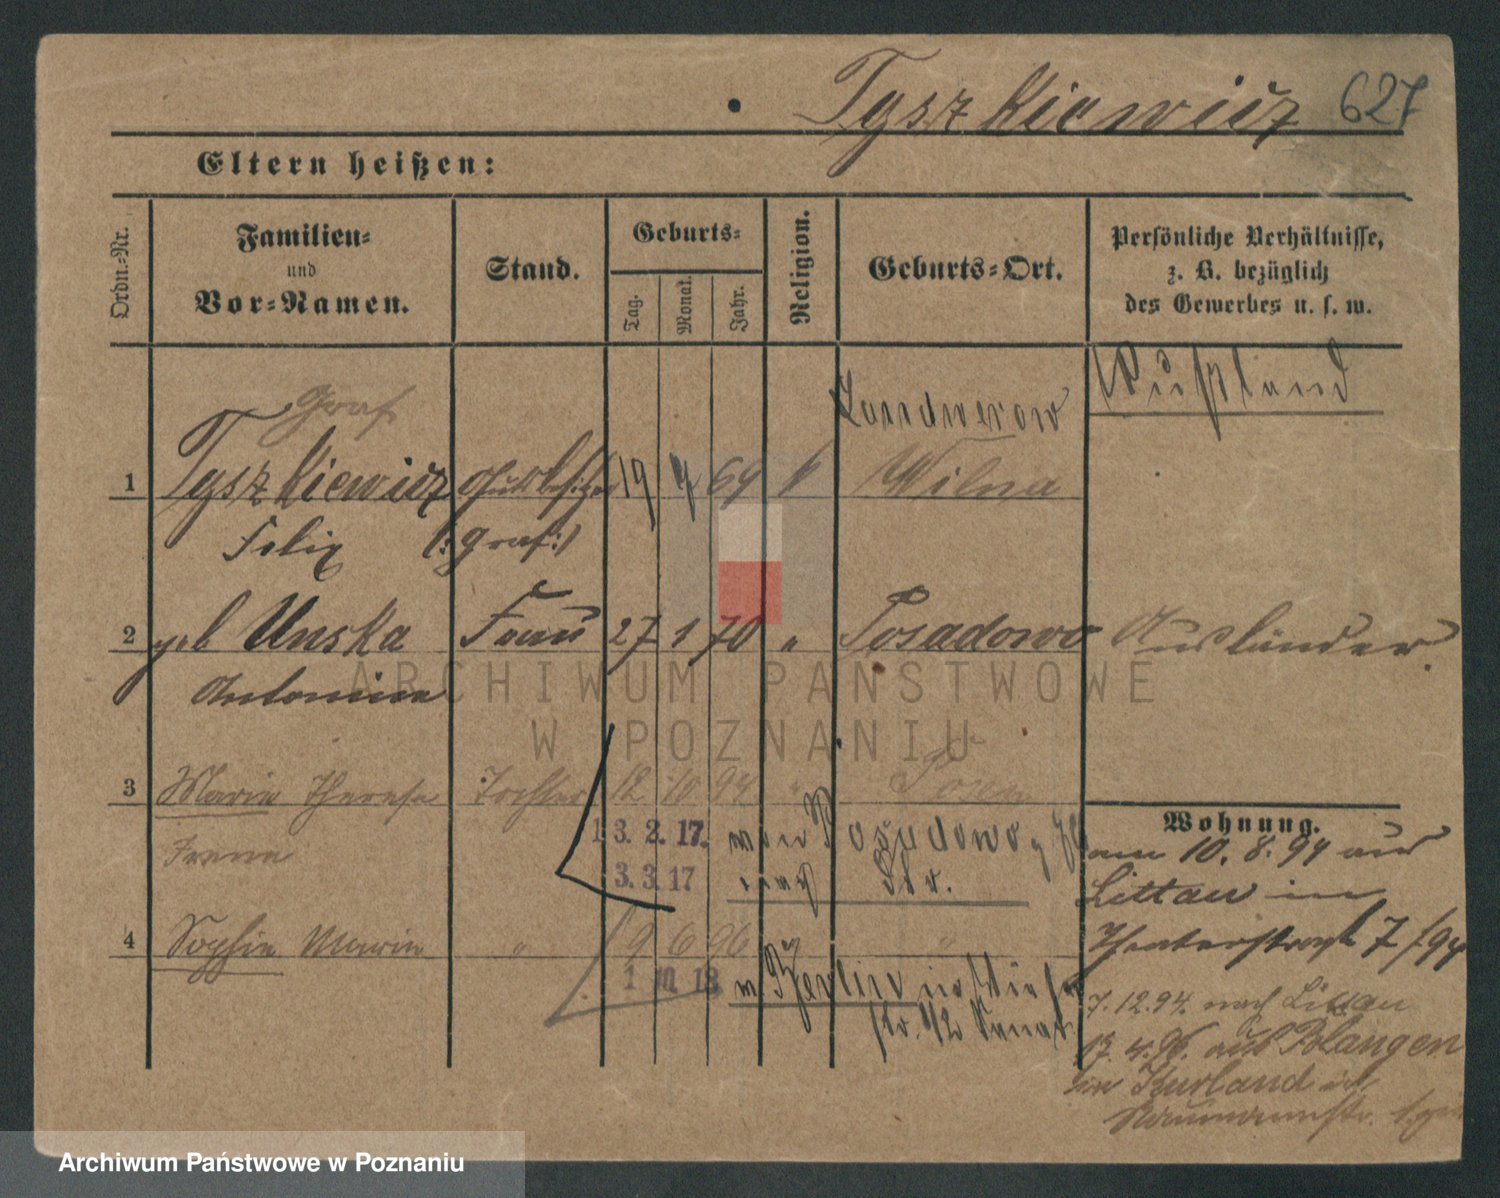 Tyszkiewicz 627
Eltern heißen:
Ordn.-Nr. Familien- und Vor-Namen. Stand. Geburts- Tag. Monat. Jahr. Religion. Geburts-Ort. Persönliche Verhältnisse, z. B. bezüglich des Gewerbes u. s. w.
Rußland
Graf Landwerow
1 Tyszkiewicz Gutsbesitzer 19 69 Wilna
Felix (: Graf :)
2 geb Unska Frau 27 1 70 " Posadowo Ausländer.
Antonina
3 Marie Therese Tochter 12 10 94 " Posen
Irene
13.2.17. von Posadowo
3.3.17 nach
Wohnung.
am 10.8.94 aus
Littau in
Theaterstraße 7/94
4 Sophie Marie " 9 6 96 " "
1 10 18 Berlin
7.12.94. nach Littau
13.4.96. aus Polangen
in Kurland in
Naumannstr.
ARCHIWUM PAŃSTWOWE
W POZNANIU
Archiwum Państwowe w Poznaniu